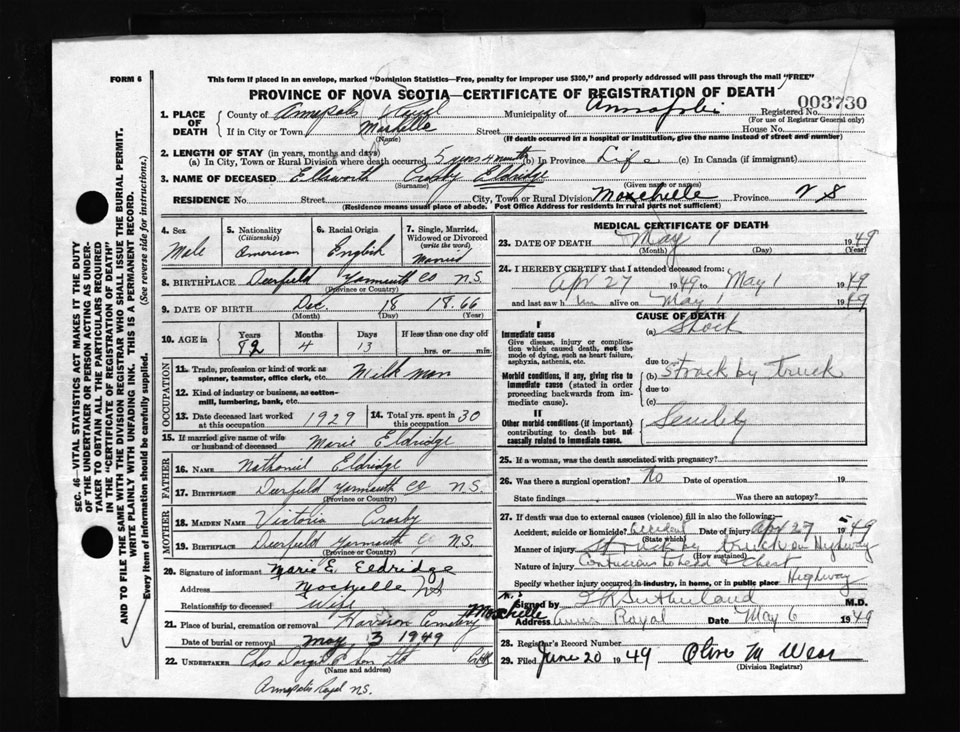 FORM 6
This form if placed in an envelope, marked "Dominion Statistics—Free, penalty for improper use $300," and properly addressed will pass through the mail "FREE"
PROVINCE OF NOVA SCOTIA—CERTIFICATE OF REGISTRATION OF DEATH
003730
1. PLACE OF DEATH
County of Annapolis Royal Municipality of Registered No.
(For use of Registrar General only)
If in City or Town Street House No.
(Name) (If death occurred in a hospital or institution, give the name instead of street and number)
2. LENGTH OF STAY (in years, months and days)
(a) In City, Town or Rural Division where death occurred 5 years 4 months (b) In Province Life (c) In Canada (if immigrant)
3. NAME OF DECEASED Ellsworth Crosby Eldridge
(Surname) (Given name or names)
RESIDENCE No. Street City, Town or Rural Division Province N S
(Residence means usual place of abode. Post Office Address for residents in rural parts not sufficient)
4. Sex
Male
5. Nationality
(Citizenship)
American
6. Racial Origin
English
7. Single, Married, Widowed or Divorced
(write the word)
Married
8. BIRTHPLACE Deerfield Yarmouth Co N.S.
(Province or Country)
9. DATE OF BIRTH Dec. 18 1866
(Month) (Day) (Year)
10. AGE in
Years Months Days If less than one day old
82 4 13 hrs. or min.
OCCUPATION
11. Trade, profession or kind of work as spinner, teamster, office clerk, etc. Milk man
12. Kind of industry or business, as cotton-mill, lumbering, bank, etc.
13. Date deceased last worked at this occupation 1929
14. Total yrs. spent in this occupation 30
15. If married give name of wife or husband of deceased Marie Eldridge
FATHER
16. NAME Nathaniel Eldridge
17. BIRTHPLACE Deerfield Yarmouth Co N.S.
(Province or Country)
MOTHER
18. MAIDEN NAME Victoria Crosby
19. BIRTHPLACE Deerfield Yarmouth Co N.S.
(Province or Country)
20. Signature of informant Marie E. Eldridge
Address NS
Relationship to deceased Wife
21. Place of burial, cremation or removal Cemetery
Date of burial or removal May 3 1949
22. UNDERTAKER
(Name and address)
Annapolis Royal N.S.
MEDICAL CERTIFICATE OF DEATH
23. DATE OF DEATH May 1 1949
(Month) (Day) (Year)
24. I HEREBY CERTIFY that I attended deceased from:
Apr 27 1949 to May 1 1949
and last saw him alive on May 1 1949
CAUSE OF DEATH
I
Immediate cause
Give disease, injury or complication which caused death, not the mode of dying, such as heart failure, asphyxia, asthenia, etc.
(a) Shock
due to
Morbid conditions, if any, giving rise to immediate cause (stated in order proceeding backwards from immediate cause).
(b) Struck by truck
due to
(c)
II
Other morbid conditions (if important) contributing to death but not causally related to immediate cause.
25. If a woman, was the death associated with pregnancy?
26. Was there a surgical operation? No Date of operation 19
State findings Was there an autopsy?
27. If death was due to external causes (violence) fill in also the following:
Accident, suicide or homicide? Accident Date of injury Apr 27 1949
(State which)
Manner of injury Struck by truck on Highway
(How sustained)
Nature of injury Contusions to head & chest
Specify whether injury occurred in industry, in home, or in public place Highway
Signed by Sutherland M.D.
Address Anna Royal Date May 6 1949
28. Registrar's Record Number
29. Filed June 20 1949 Olive M
(Division Registrar)
SEC. 46—VITAL STATISTICS ACT MAKES IT THE DUTY
OF THE UNDERTAKER OR PERSON ACTING AS UNDER-
TAKER TO OBTAIN ALL THE PARTICULARS REQUIRED
IN THE "CERTIFICATE OF REGISTRATION OF DEATH"
AND TO FILE THE SAME WITH THE DIVISION REGISTRAR WHO SHALL ISSUE THE BURIAL PERMIT.
WRITE PLAINLY WITH UNFADING INK. THIS IS A PERMANENT RECORD.
Every item of information should be carefully supplied. (See reverse side for instructions.)